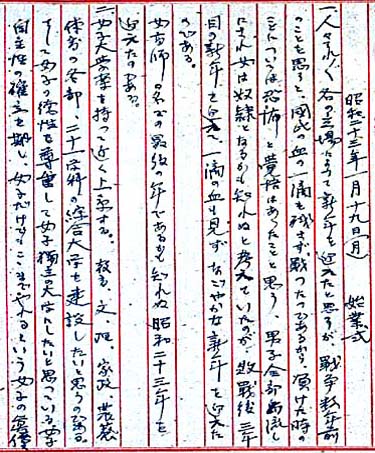 昭和二十三年一月十九日(月) 始業式
一、人々それぞれ各の立場に於て新年を迎えたと思うが、戦争数年前
のことを思うと、国民の血の一滴を残さず戦ったのであるから負けた時の
ことについては恐怖と覚悟はあったことと思う 男子全部島流し
にされ女は奴隷となるかも知れぬと考えていたのが、敗戦後三年
目の新年を迎えて一滴の血も見ず なごやかな新年を迎えた
のである。
女高師の名での最後の年であるかも知れぬ昭和二十三年を
迎えたのである。
二、女子大学案を持って近く上京する。教育、文、理、家政、農芸
体育の各部、二十一学科の綜合大学を建設したいと思うのである。
そして女子の徳性を尊重して女子独立の大学にしたいと思っている。女子
自主性の確立を期し、女子だけでもここまでやれるという女子の